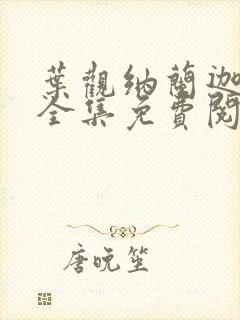 葉觀納蘭迦
全集免費閱
唐晚笙